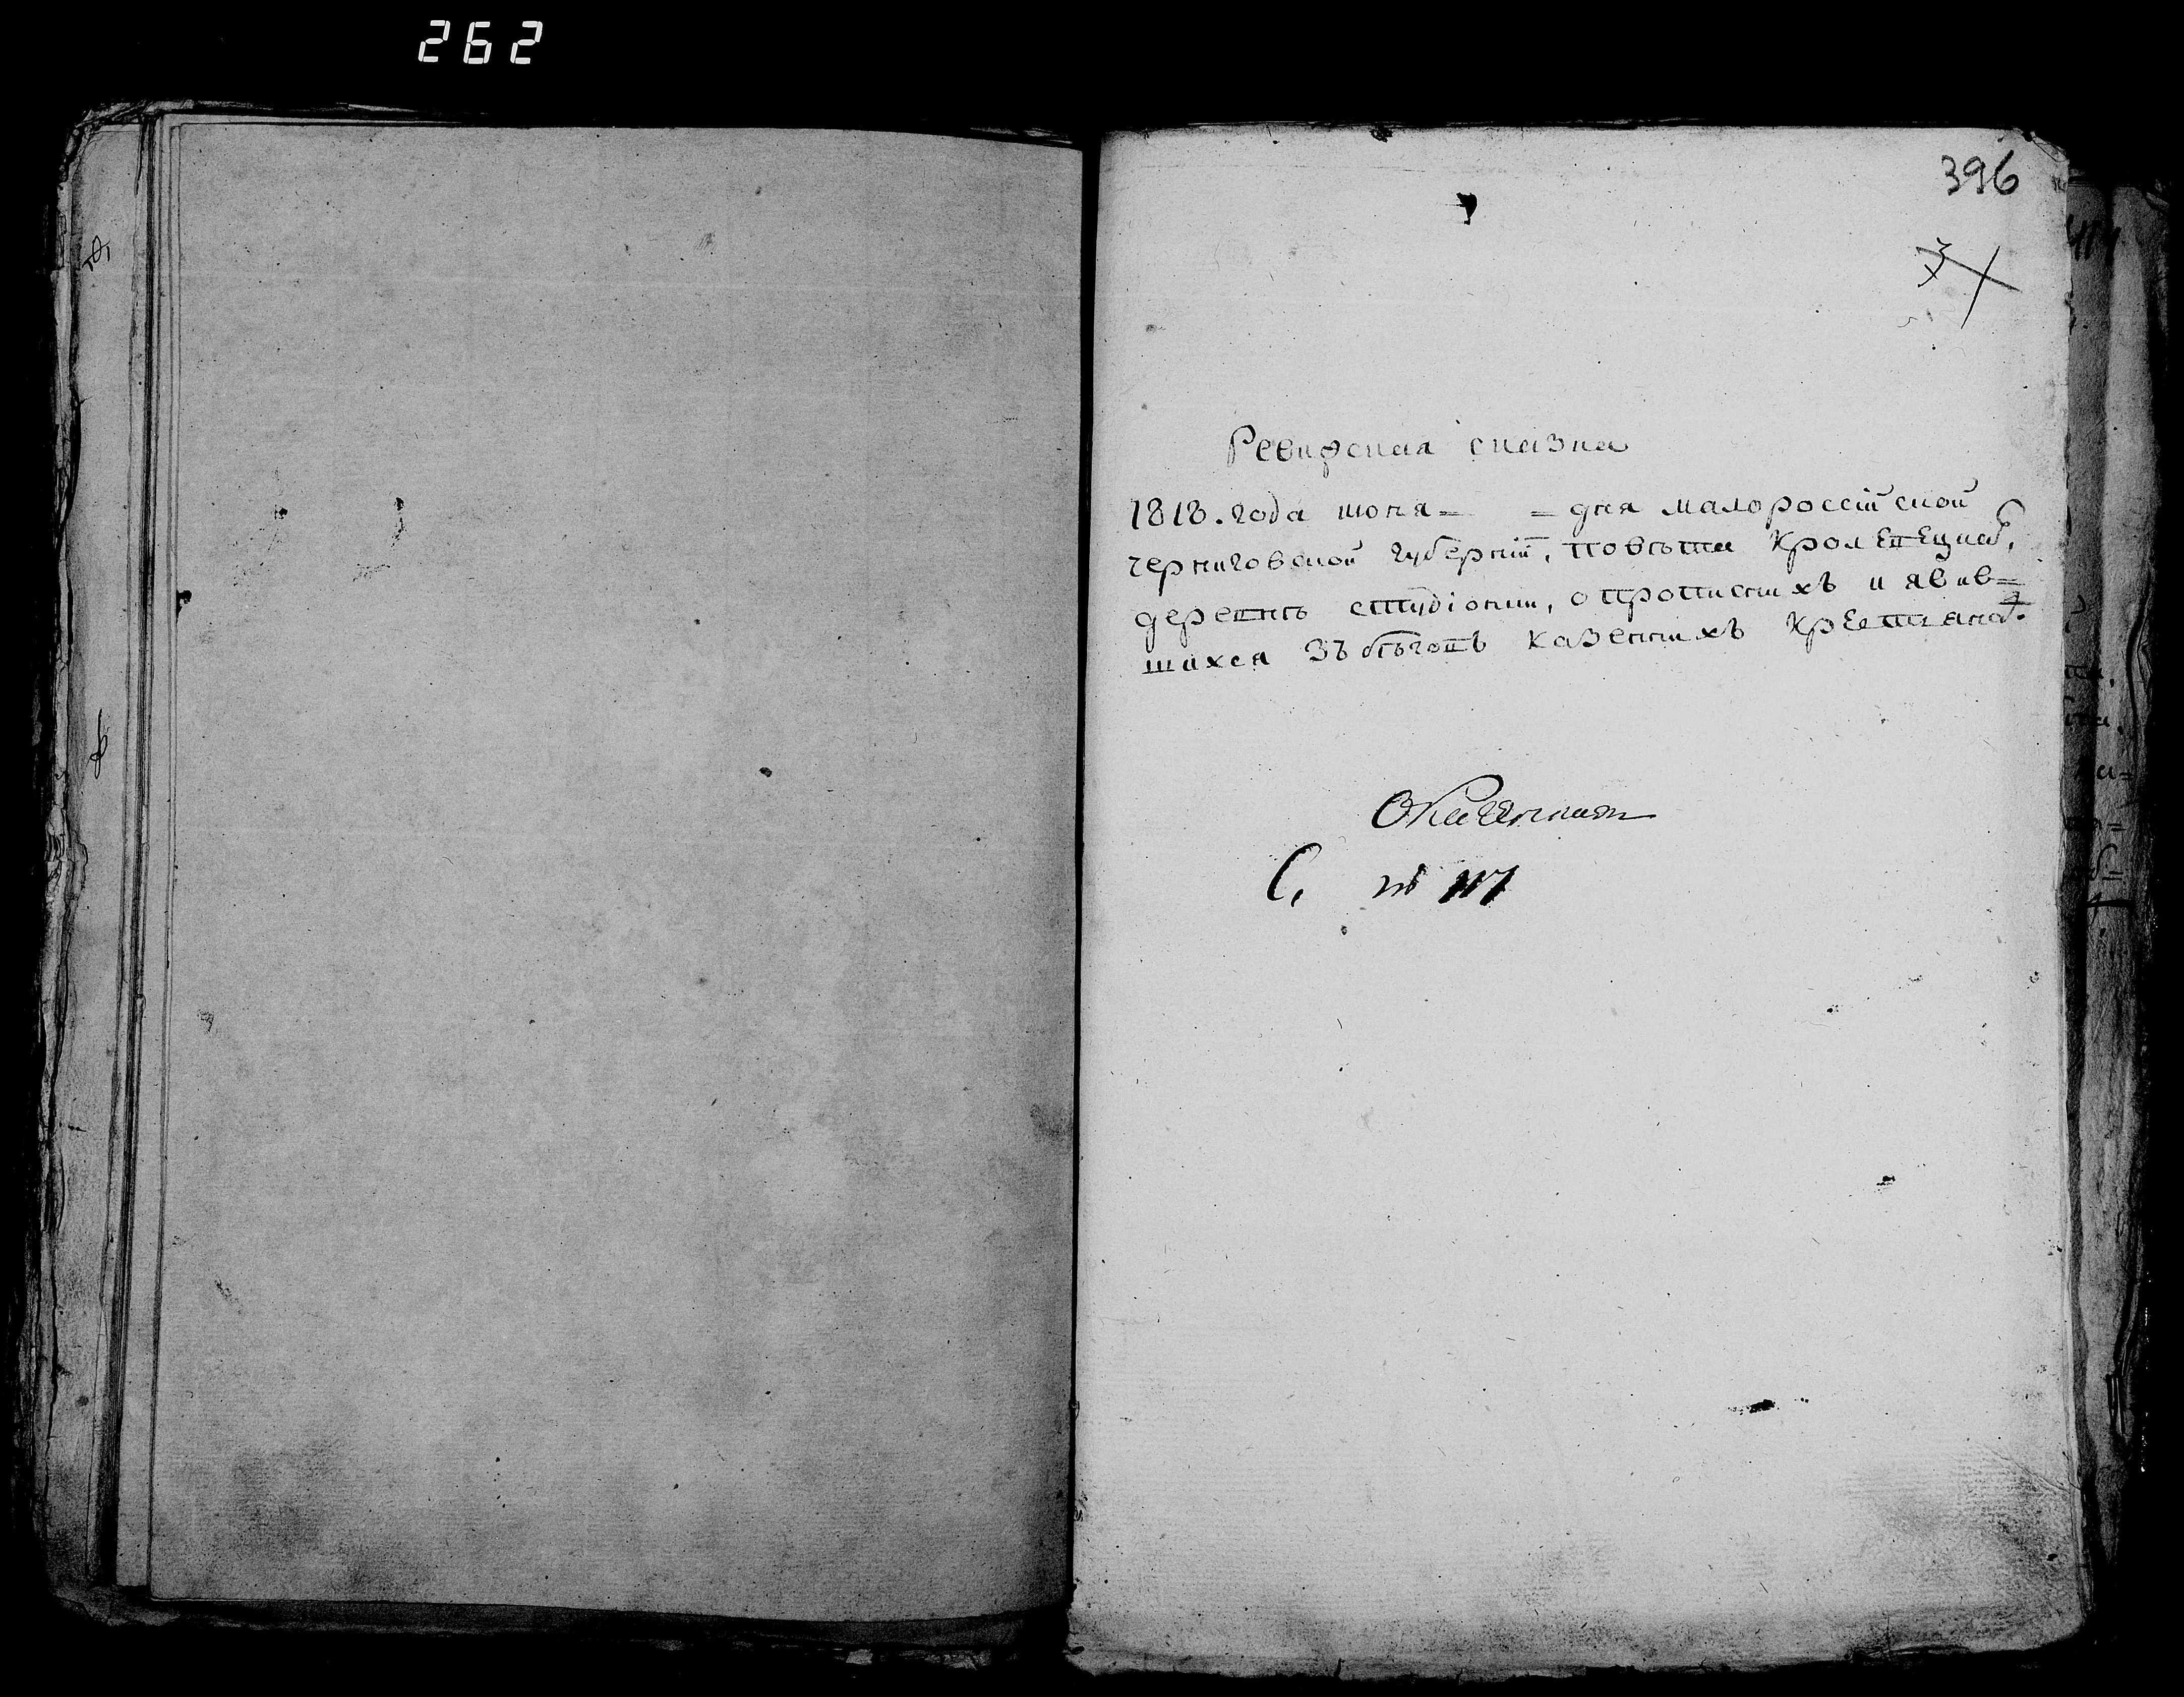 262
396
Ревизская сказка
1818. года июня = = дня малороссійской
черниговской губерніи, повѣта Кролевецка[го],
деревнѣ студіонки, опрописнихъ и явив=
шихся зъ бѣговъ казеннихъ Крестяна[хъ].
О Казенных
С. № 117